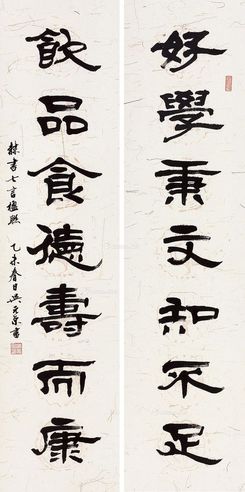 好學秉文知不足
飲品食德壽而康
隸書七言楹聯 乙未春日吳元京書